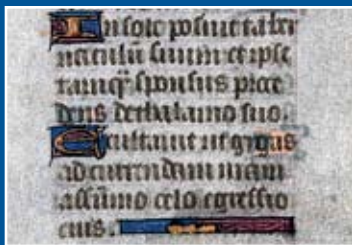 In sole posuit taber
naculū suum et ipse
tamq̄ sponsus proce
dens de thalamo suo.
Exultauit ut gygas
ad currendam uiam
a sūmo celo egressio
eius.